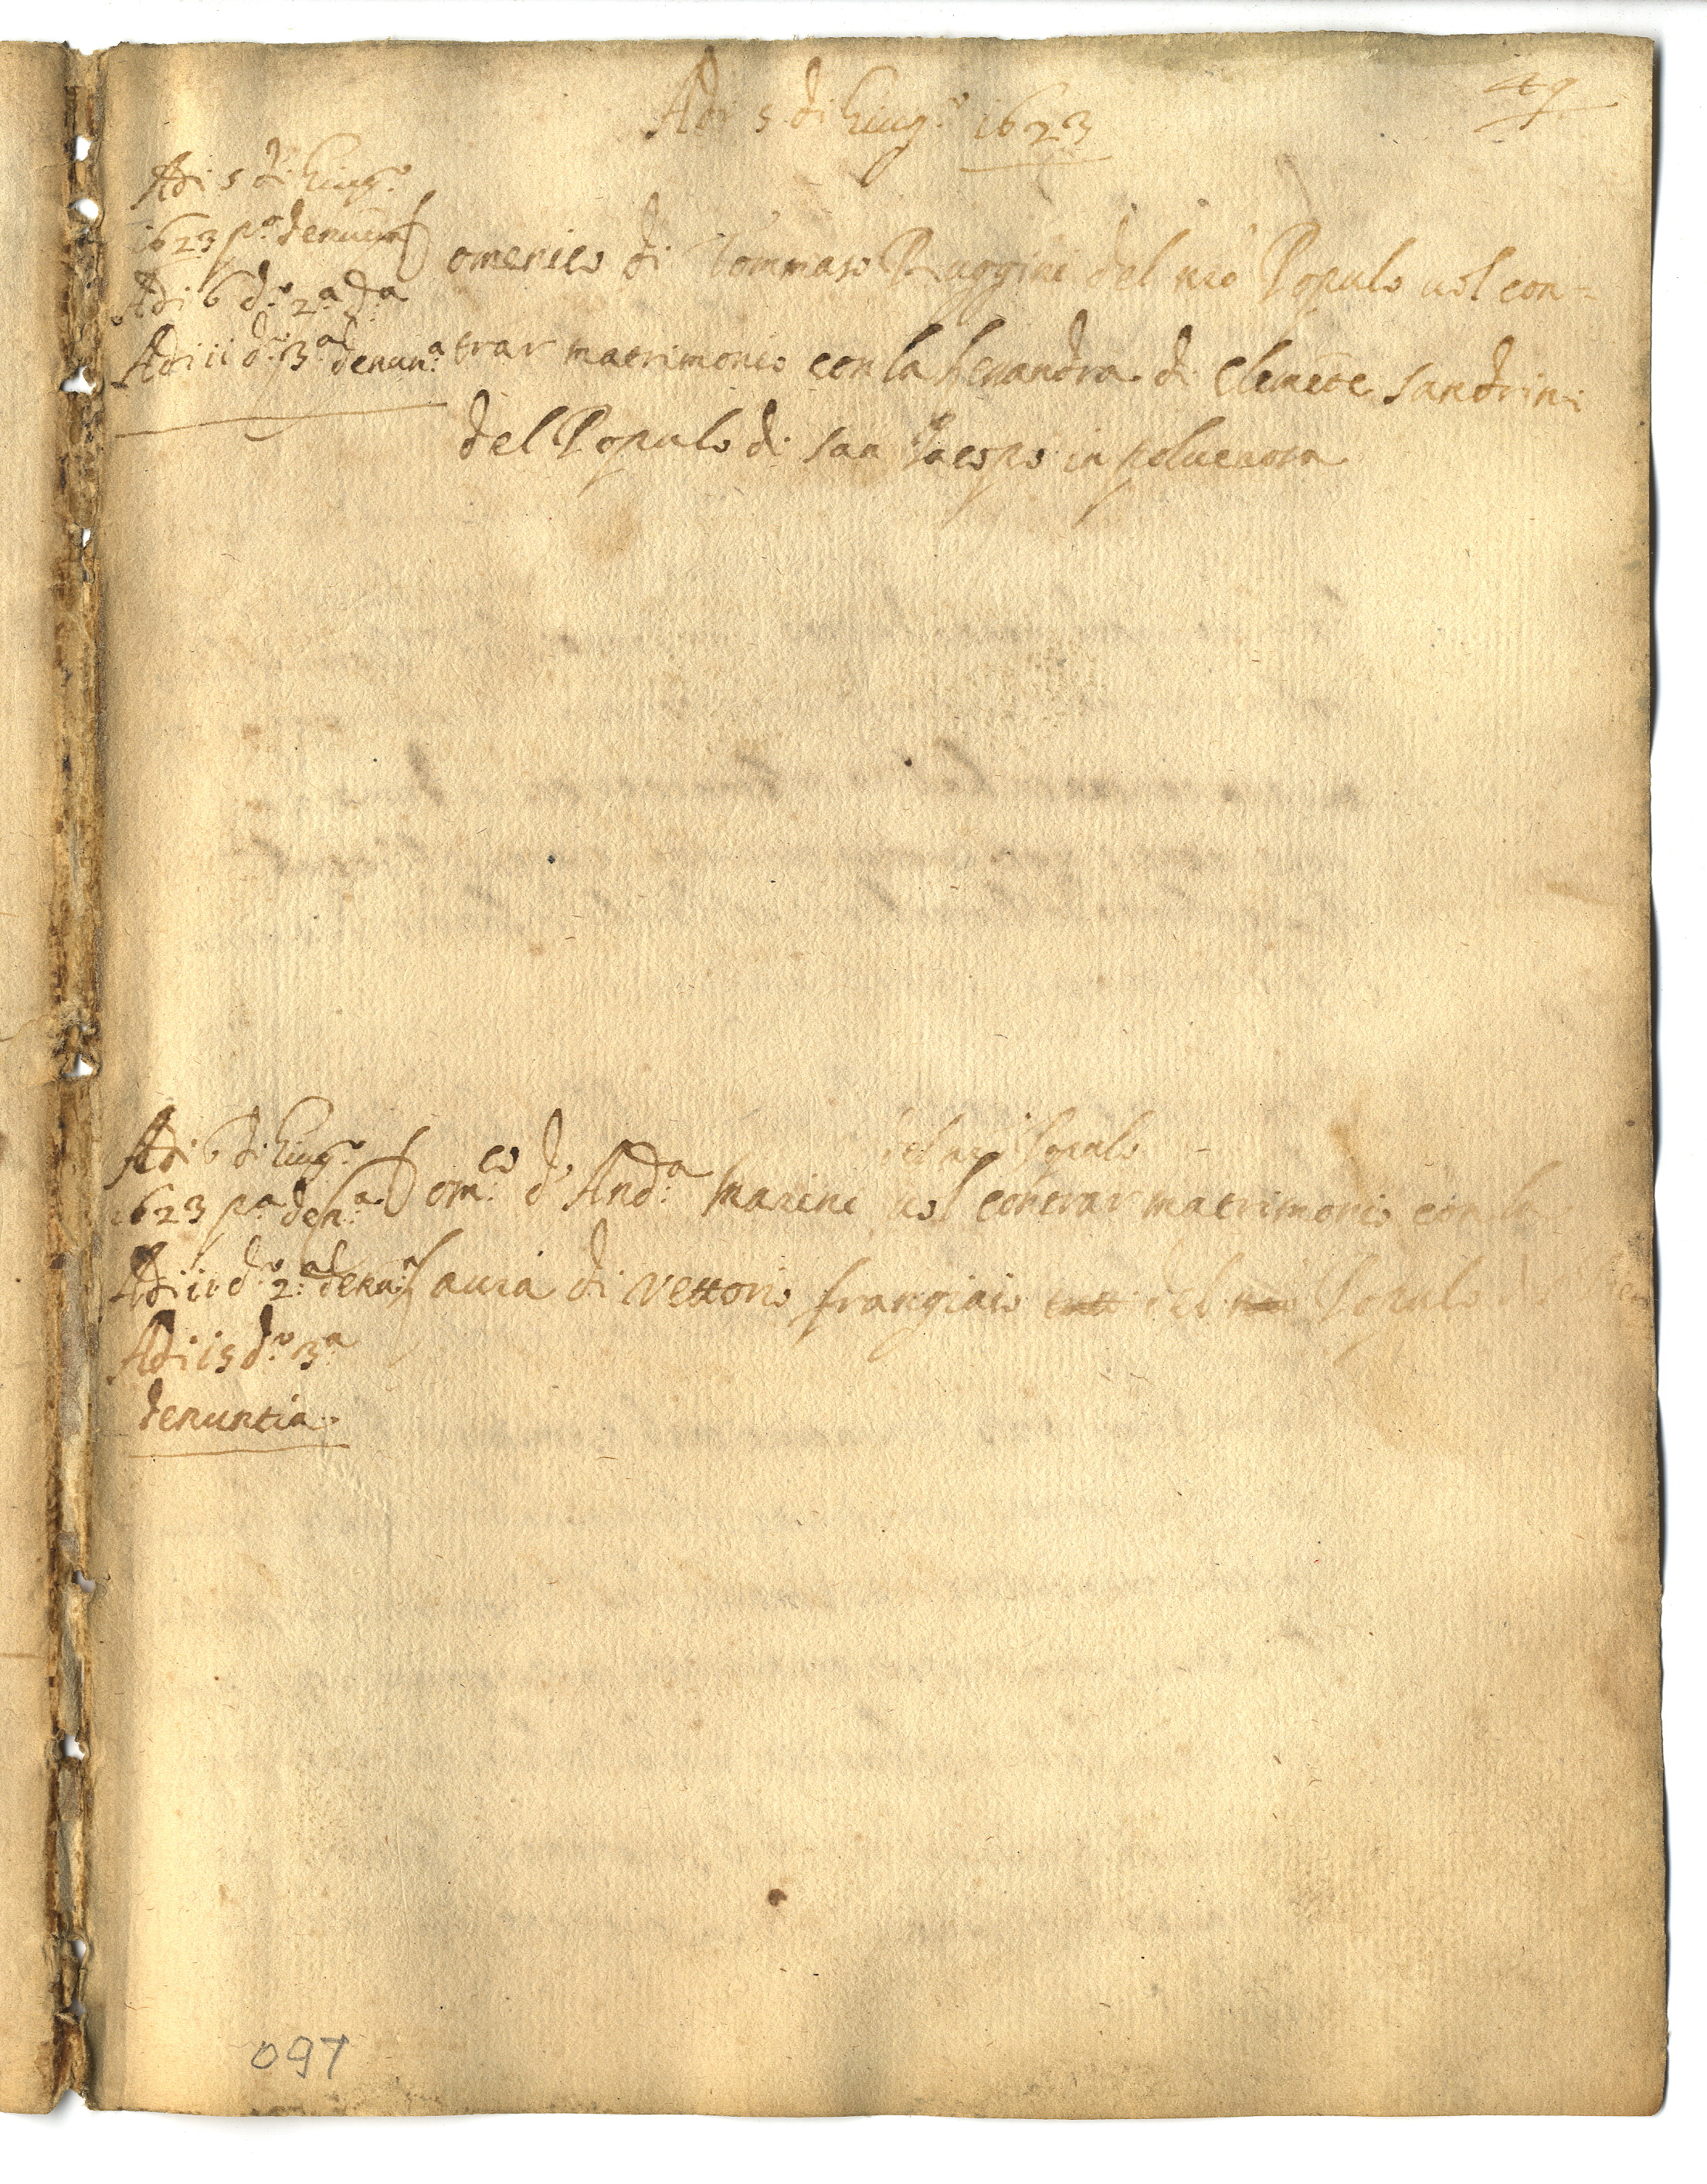 49
Adi 5 di Giug.o 1623
Adi 5 di Giug.o
1623 p.a denun.a
Adi 6 d.o 2.a d.a
Adi ii d.o 3.a denun.a
Domenico di Tommaso Ruggini del mio Populo vol con=
trar matrimonio con la Lenandra di Clemēte Sandrini
del Populo di San Jacopo in polverosa
Adi 6 di Giug.o
1623 p.a den.a
Adi ii d.o 2.a denu.a
Adi 15 d.o 3.a
denuntia.
del mio Populo
Dom.co d'And.a Marini vol contrar matrimonio con la
Laura di Vettorio frangiaio del Populo di
097